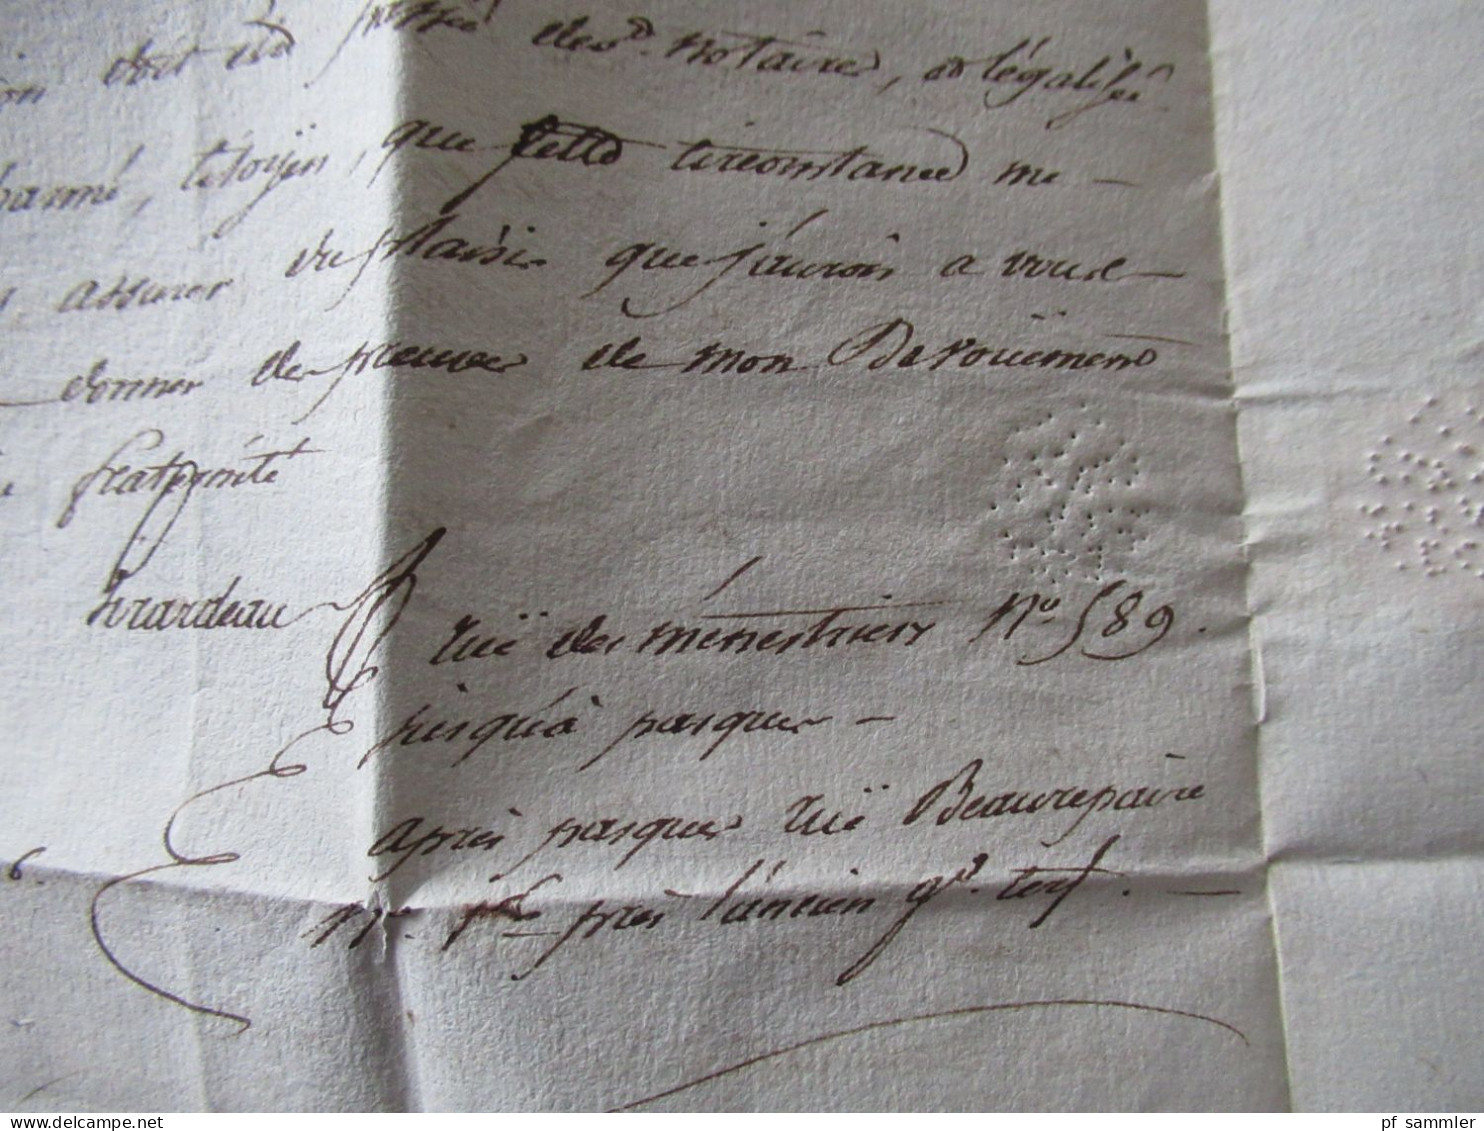 doit être passée des.d notaires, et légalisée
charmé, citoyen, que cette circonstance me —
assurer du plaisir que j'aurois a vous —
donner des preuves de mon Devoüement
fraternité
Girardeau
ruë des ménestriers N.o 589.
jusqu'à pasques —
après pasques ruë Beaurepaire
près l'ancien g.d cerf. —
6.
pf_sammler